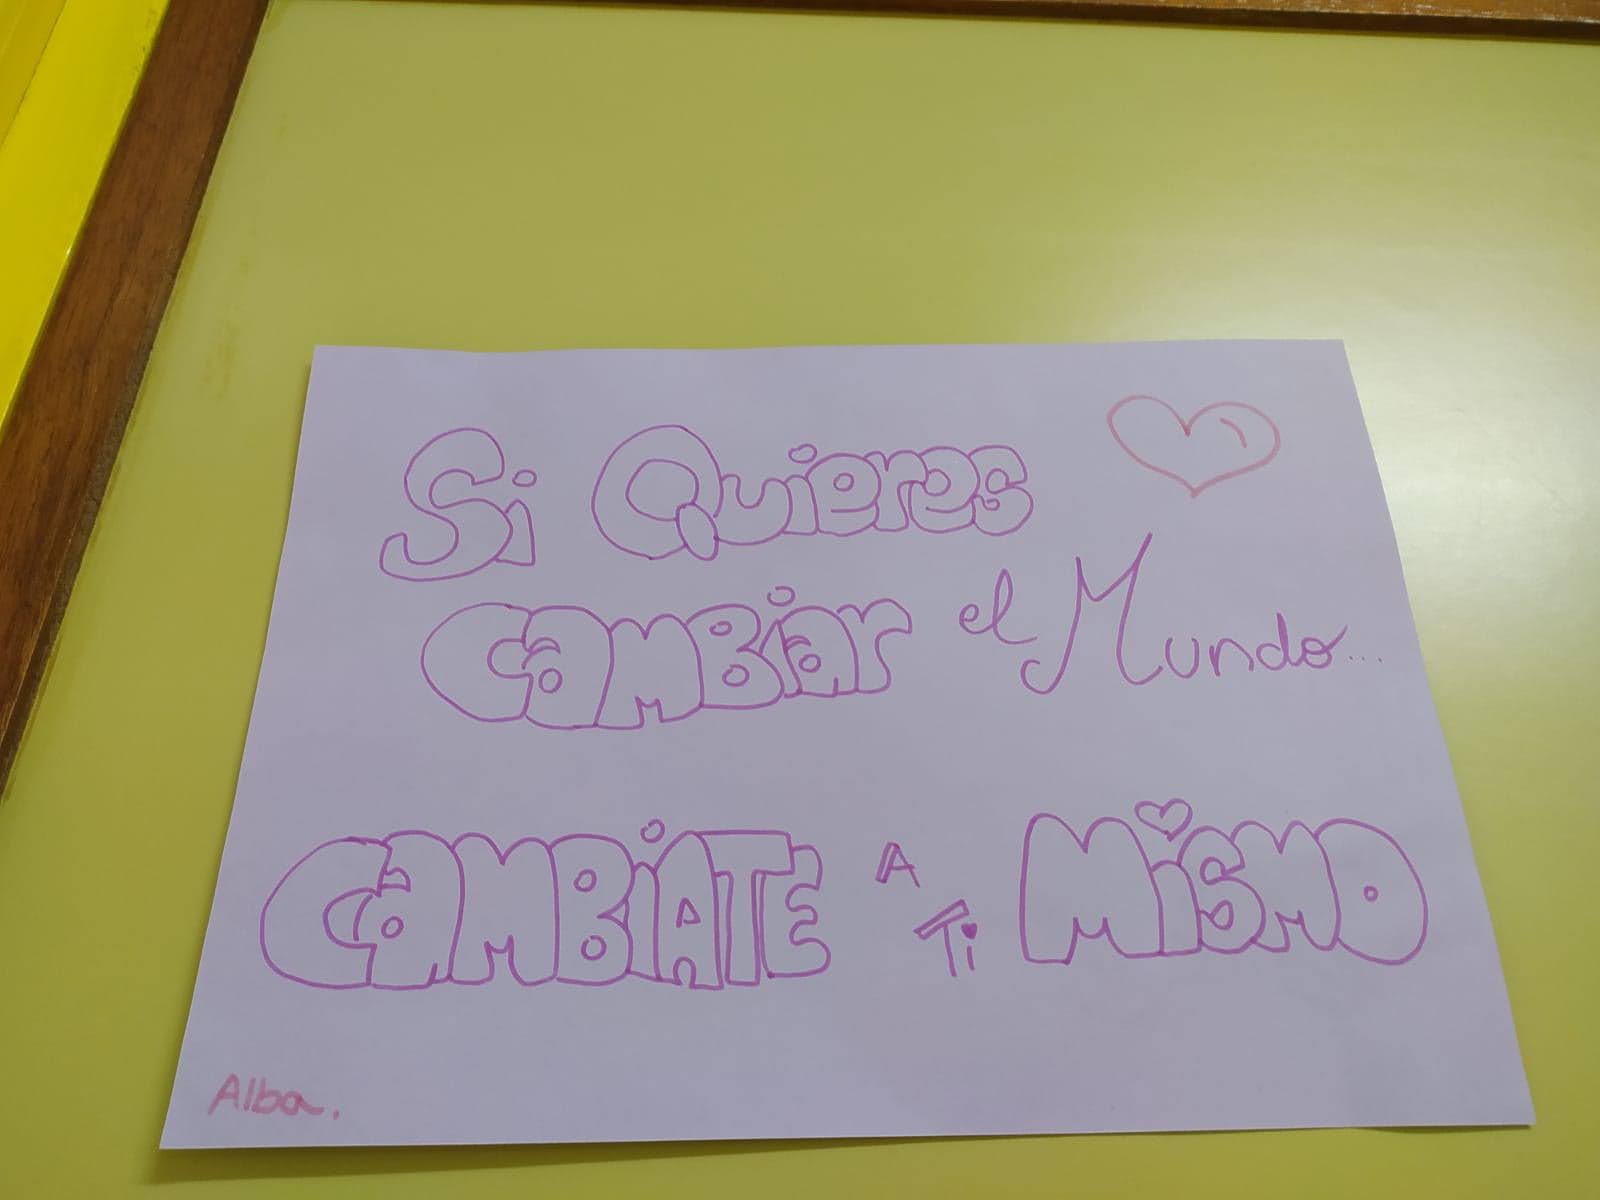 Si Quieres
CaMBiar el Mundo...
CaMBiATE A Ti MiSMO
Alba.